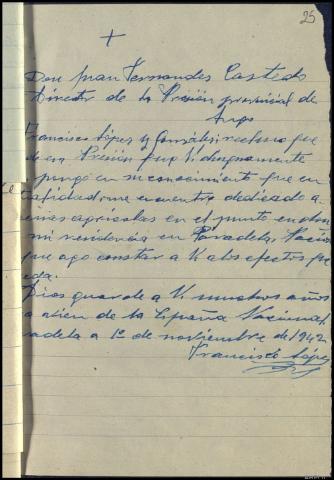 25
+
Don Juan Fernandes Castedo
Director de la Prisión provincial de
Lugo
Francisco López y González, recluso que
de esa Prisión que V. dignamente
pongo en su conocimiento que en
me encuentro dedicado a
agricolas en el punto en donde
mi residencia en Paradela,
que ago constar a V. a los efectos
Dios guarde a V. muchos años
de la España Nacional
radela a 1º de noviembre de 1942
Francisco López